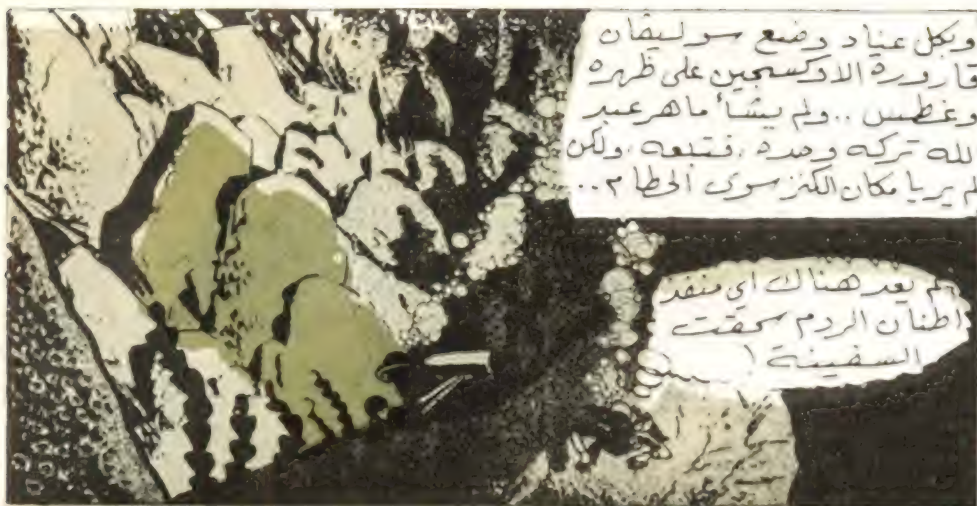 وبكل عناد وضع سوليڤان
قارورة الاوكسجين على ظهره
وغطس .. ولم يشأ ماهر عبد
الله تركه وحده ، فتبعه ، ولكن
لم يريا مكان الكنز سوى الحطام ..
لم يعد هناك اي منفد
اطنان الردم سحقت
السفينة !